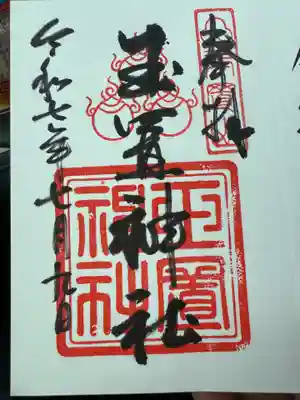 奉拝
玉置神社
玉置
神社
令和七年七月九日